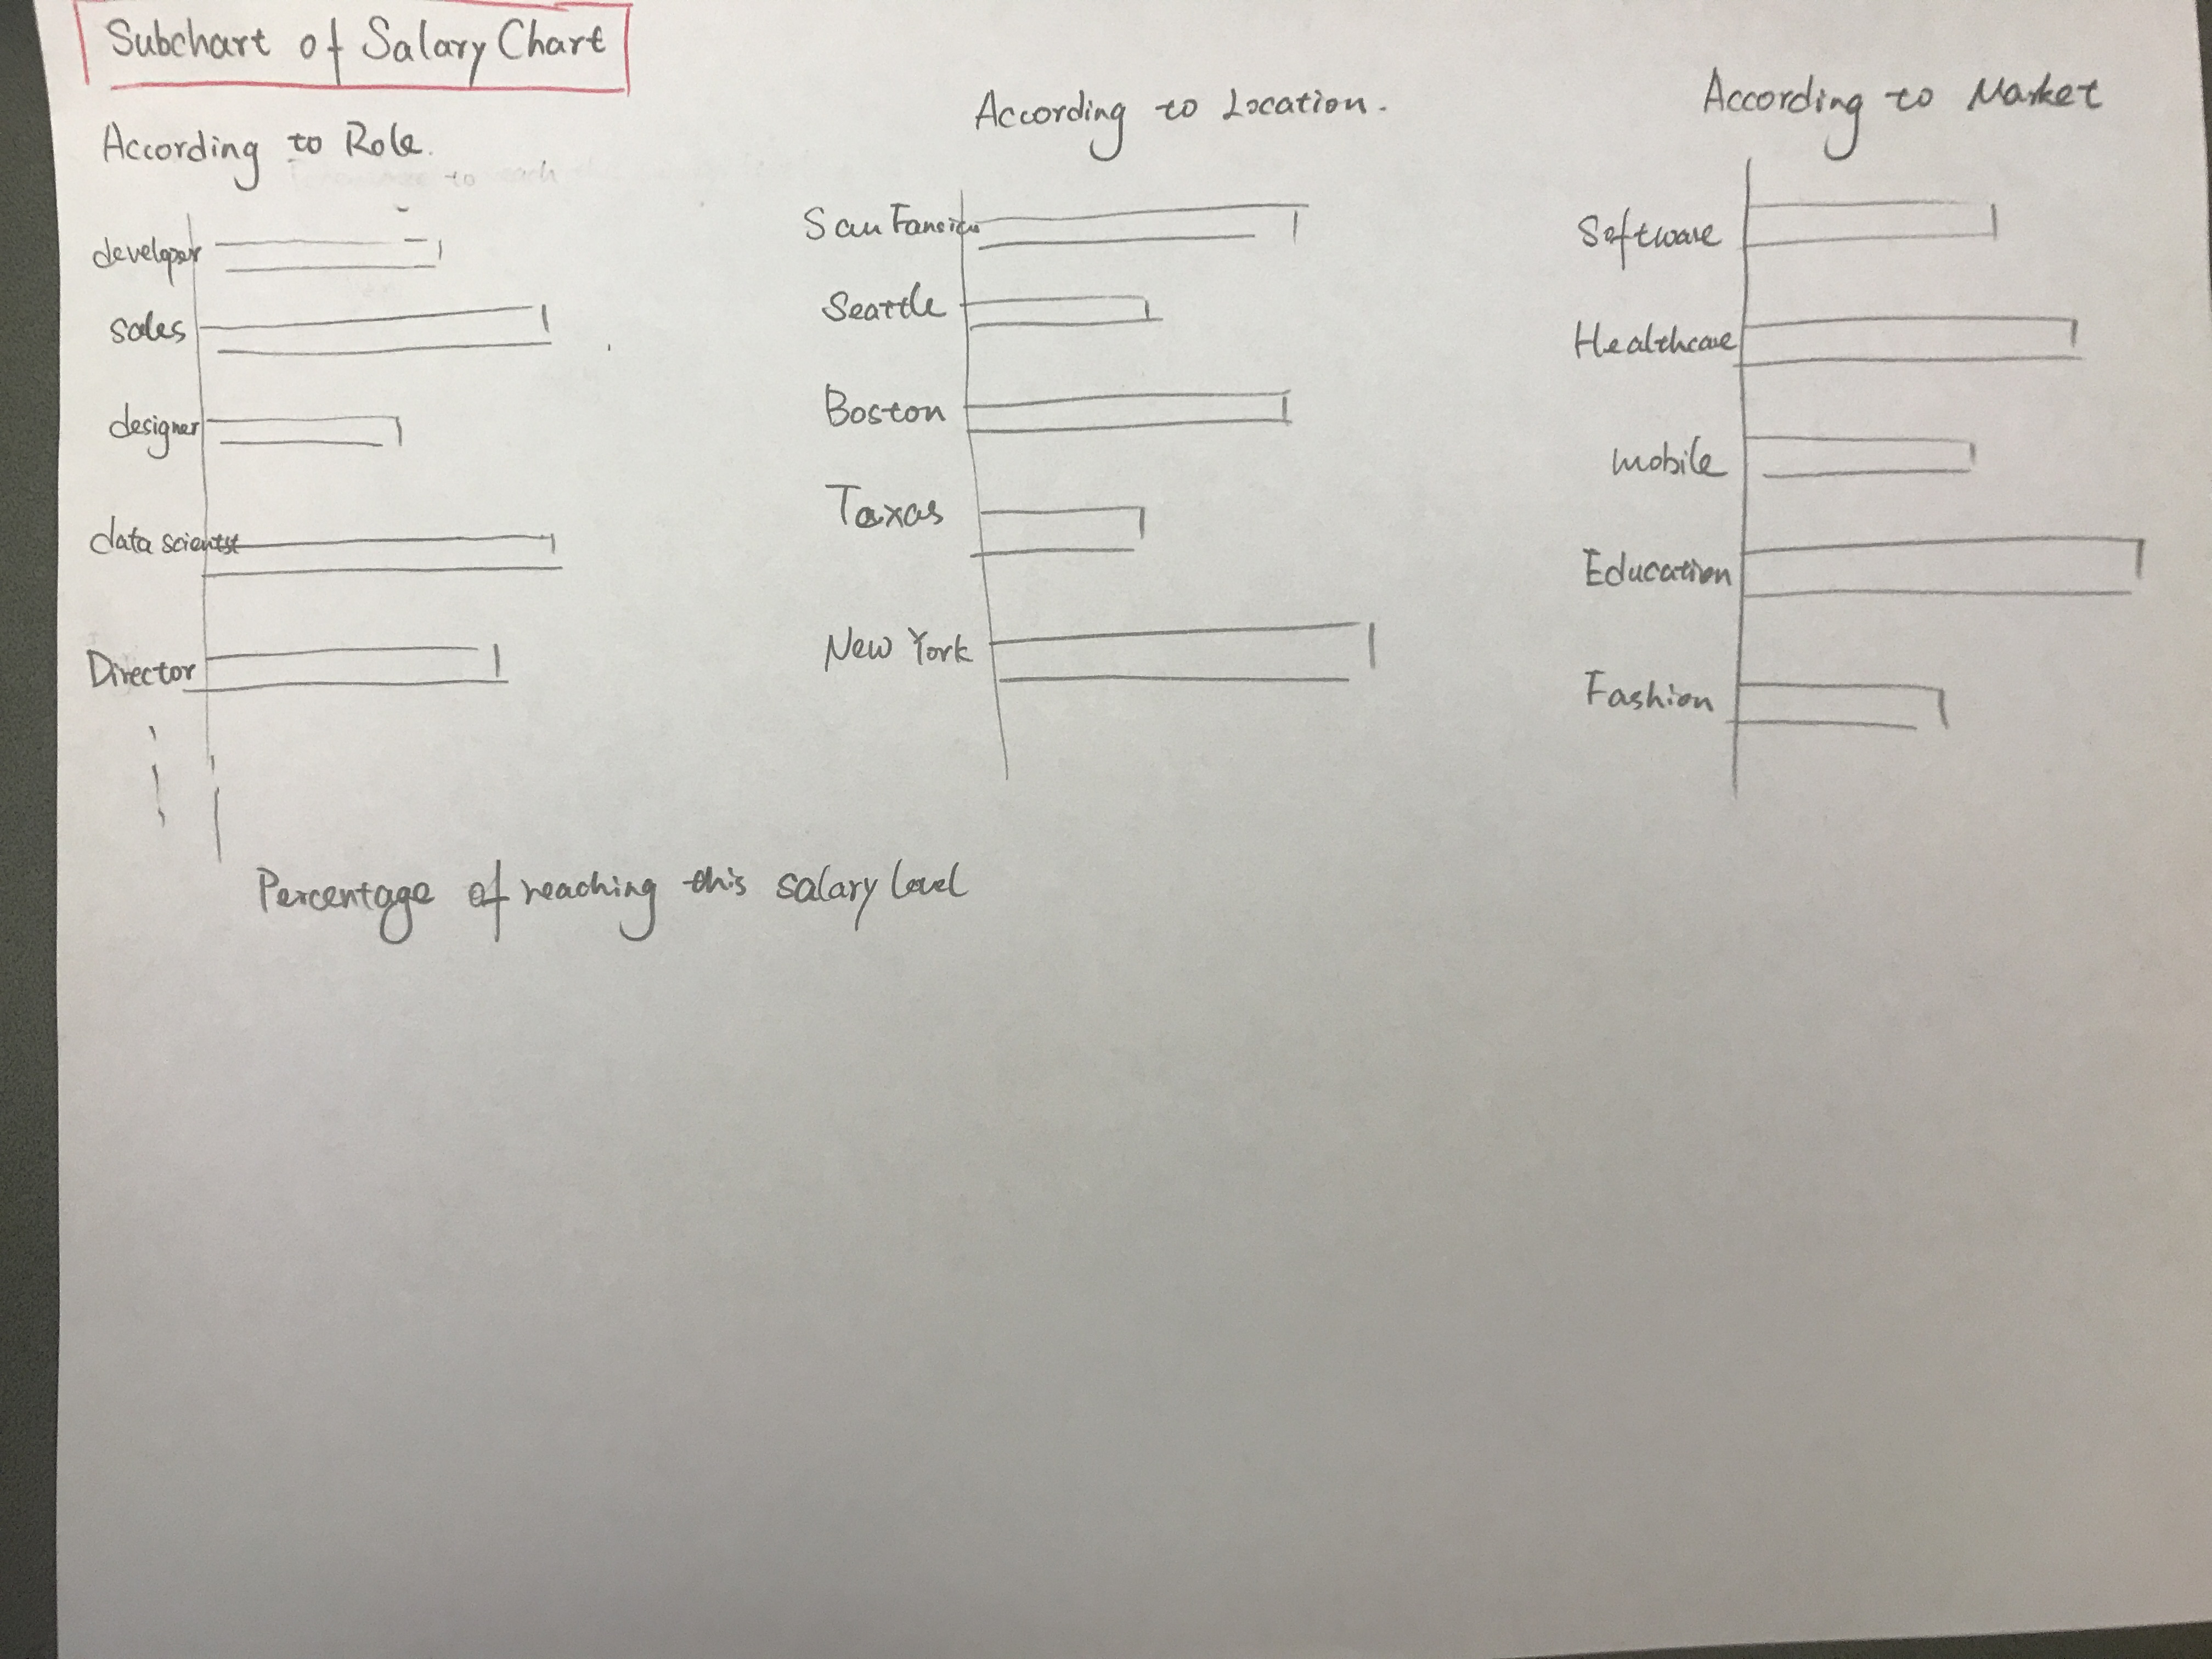 Subchart of Salary Chart
According to Role.
developer
sales
designer
data scientist
Director
Percentage of reaching this salary level
According to Location.
San Fancico
Seattle
Boston
Taixas
New York
According to Market
Software
Healthcare
mobile
Education
Fashion